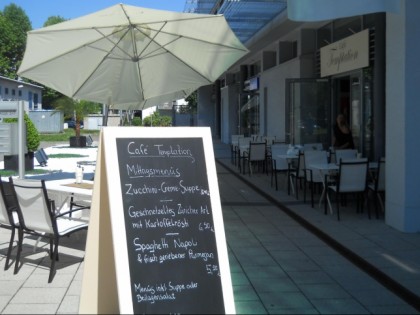 Café Temptation
Mittagsmenüs
Zucchini-Creme Suppe
Geschnetzeltes Züricher Art
mit Kartoffelrösti 6,90
Spaghetti Napoli
& frisch geriebener Parmesan
5,90
Menüs inkl Suppe oder
Beilagensalat
Temptation